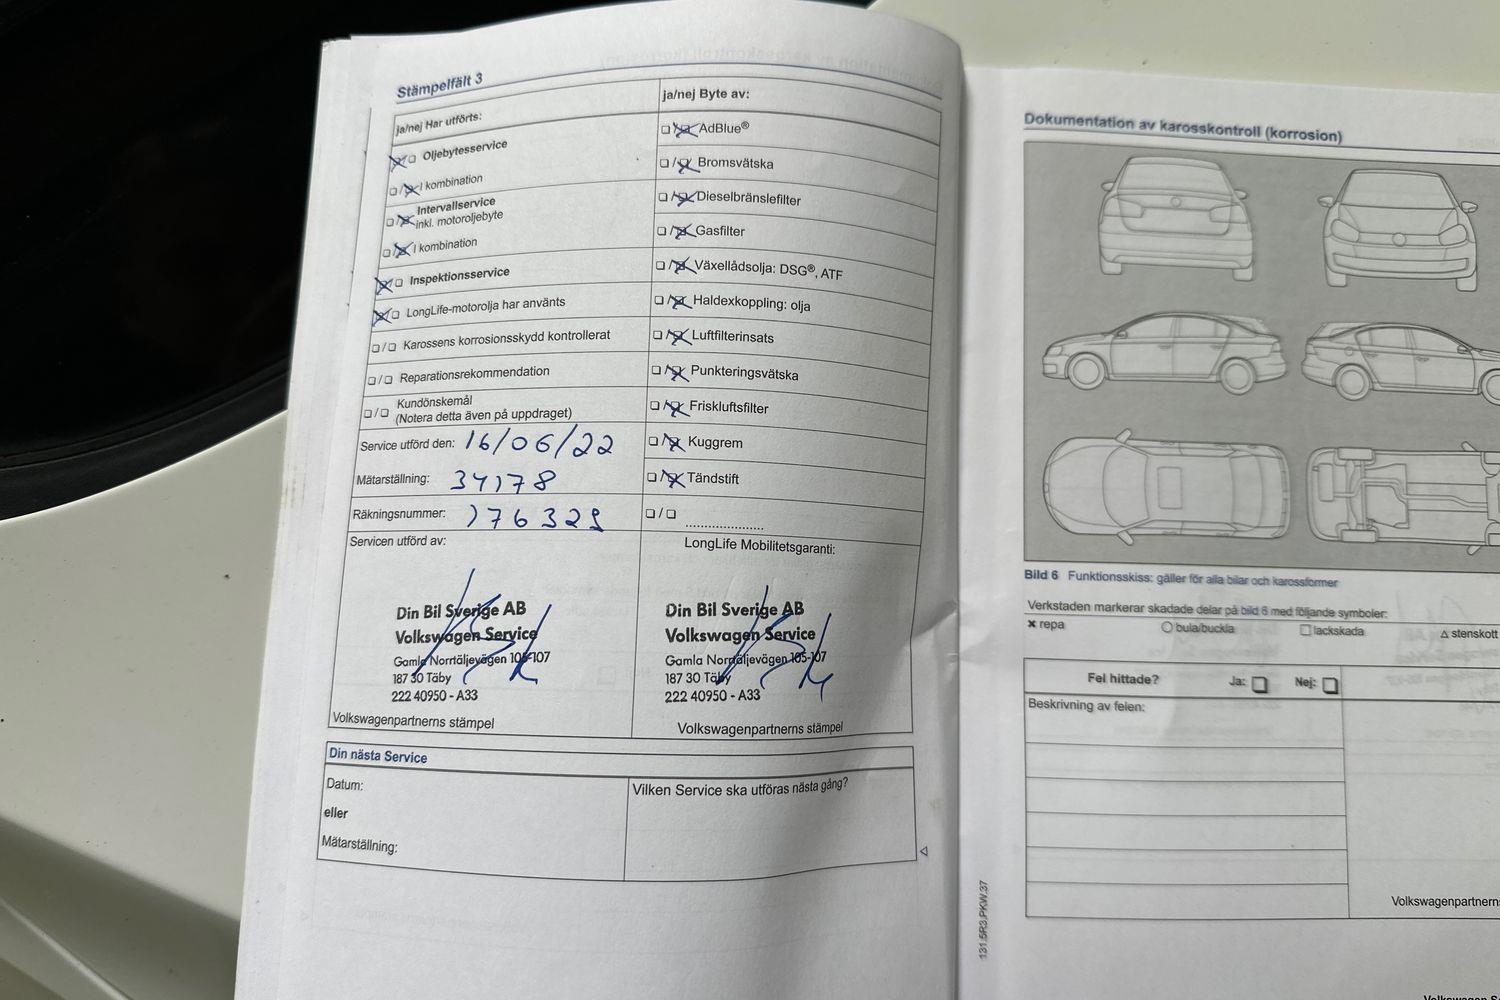 Stämpelfält 3
ja/nej Har utförts:
☒/☐ Oljebytesservice
☐/☒ I kombination
☐/☒ Intervallservice
inkl. motoroljebyte
☐/☒ I kombination
☒/☐ Inspektionsservice
☒/☐ LongLife-motorolja har använts
☐/☐ Karossens korrosionsskydd kontrollerat
☐/☐ Reparationsrekommendation
☐/☐ Kundönskemål
(Notera detta även på uppdraget)
Service utförd den: 16/06/22
Mätarställning: 34178
Räkningsnummer: 176329
Servicen utförd av:
Din Bil Sverige AB
Volkswagen Service
Gamla Norrtäljevägen 105-107
187 30 Täby
222 40950 - A33
Volkswagenpartnerns stämpel
ja/nej Byte av:
☐/☒ AdBlue®
☐/☒ Bromsvätska
☐/☒ Dieselbränslefilter
☐/☒ Gasfilter
☐/☒ Växellådsolja: DSG®, ATF
☐/☒ Haldexkoppling: olja
☐/☒ Luftfilterinsats
☐/☒ Punkteringsvätska
☐/☒ Friskluftsfilter
☐/☒ Kuggrem
☐/☒ Tändstift
☐/☐ ......................
LongLife Mobilitetsgaranti:
Din Bil Sverige AB
Volkswagen Service
Gamla Norrtäljevägen 105-107
187 30 Täby
222 40950 - A33
Volkswagenpartnerns stämpel
Din nästa Service
Datum:
eller
Mätarställning:
Vilken Service ska utföras nästa gång?
Dokumentation av karosskontroll (korrosion)
Bild 6 Funktionsskiss: gäller för alla bilar och karossformer
Verkstaden markerar skadade delar på bild 6 med följande symboler:
× repa ○ bula/buckla □ lackskada △ stenskott
Fel hittade? Ja: ☐ Nej: ☐
Beskrivning av felen:
Volkswagenpartnerns
131.5R3.PKW.37